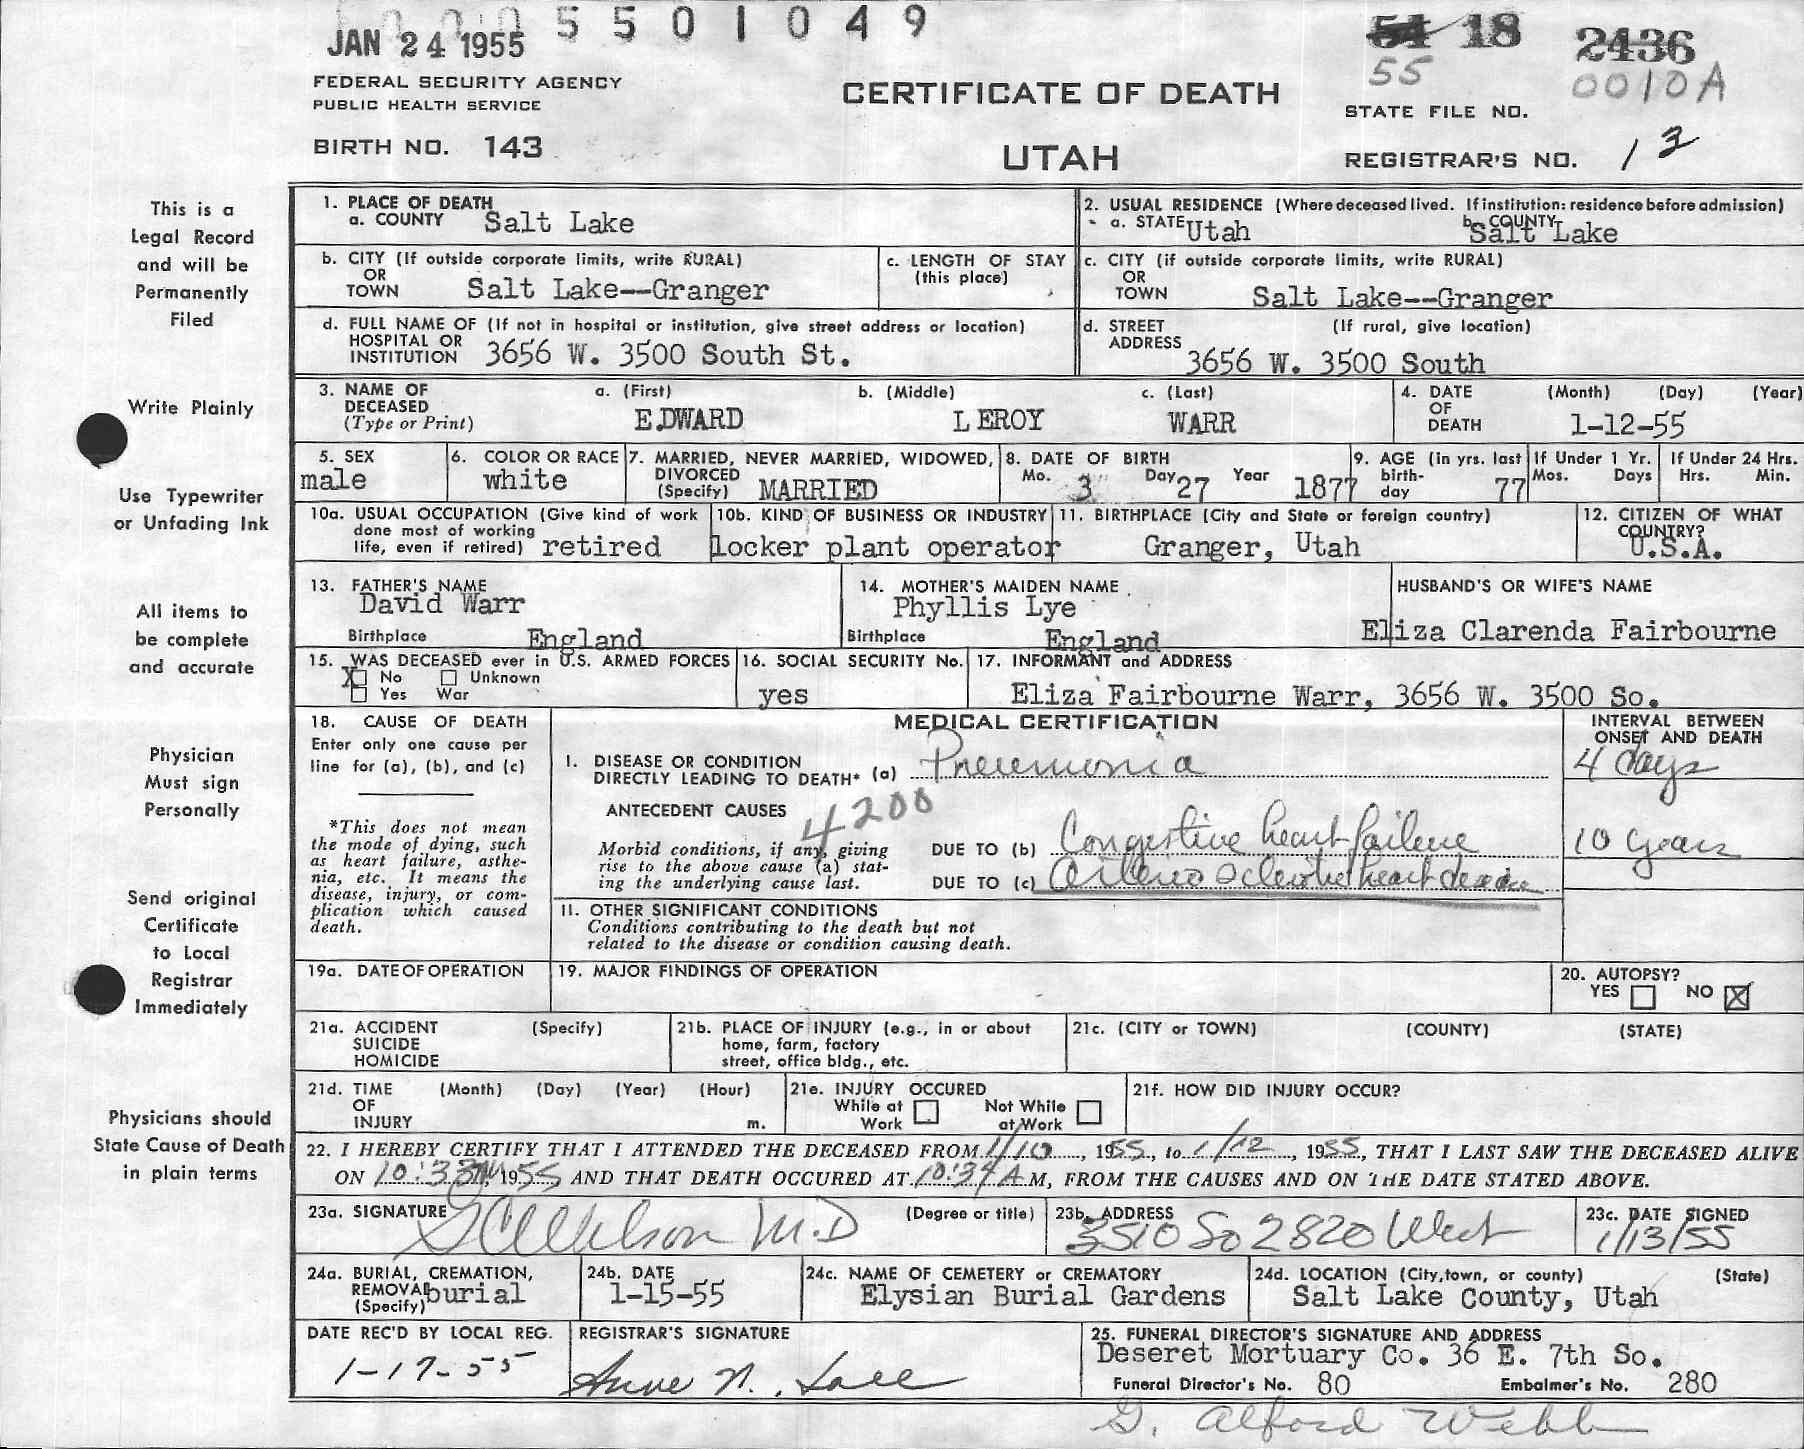 0 0 0 5 5 0 1 0 4 9
JAN 24 1955
54 18 2436
55 0010A
FEDERAL SECURITY AGENCY
PUBLIC HEALTH SERVICE
CERTIFICATE OF DEATH
STATE FILE NO.
BIRTH NO. 143
UTAH
REGISTRAR'S NO. 13
This is a
Legal Record
and will be
Permanently
Filed
Write Plainly
Use Typewriter
or Unfading Ink
All items to
be complete
and accurate
Physician
Must sign
Personally
Send original
Certificate
to Local
Registrar
Immediately
Physicians should
State Cause of Death
in plain terms
1. PLACE OF DEATH
a. COUNTY Salt Lake
2. USUAL RESIDENCE (Where deceased lived. If institution: residence before admission)
a. STATE Utah b. COUNTY Salt Lake
b. CITY (If outside corporate limits, write RURAL)
OR
TOWN Salt Lake--Granger
c. LENGTH OF STAY
(this place)
c. CITY (if outside corporate limits, write RURAL)
OR
TOWN Salt Lake--Granger
d. FULL NAME OF (If not in hospital or institution, give street address or location)
HOSPITAL OR
INSTITUTION 3656 W. 3500 South St.
d. STREET (If rural, give location)
ADDRESS
3656 W. 3500 South
3. NAME OF a. (First) b. (Middle) c. (Last)
DECEASED
(Type or Print) EDWARD LEROY WARR
4. DATE (Month) (Day) (Year)
OF
DEATH 1-12-55
5. SEX
male
6. COLOR OR RACE
white
7. MARRIED, NEVER MARRIED, WIDOWED,
DIVORCED
(Specify) MARRIED
8. DATE OF BIRTH
Mo. 3 Day 27 Year 1877
9. AGE (in yrs. last
birth-
day 77
If Under 1 Yr.
Mos. Days
If Under 24 Hrs.
Hrs. Min.
10a. USUAL OCCUPATION (Give kind of work
done most of working
life, even if retired) retired
10b. KIND OF BUSINESS OR INDUSTRY
locker plant operator
11. BIRTHPLACE (City and State or foreign country)
Granger, Utah
12. CITIZEN OF WHAT
COUNTRY?
U.S.A.
13. FATHER'S NAME
David Warr
Birthplace England
14. MOTHER'S MAIDEN NAME
Phyllis Lye
Birthplace England
HUSBAND'S OR WIFE'S NAME
Eliza Clarenda Fairbourne
15. WAS DECEASED ever in U.S. ARMED FORCES
X No Unknown
Yes War
16. SOCIAL SECURITY No.
yes
17. INFORMANT and ADDRESS
Eliza Fairbourne Warr, 3656 W. 3500 So.
18. CAUSE OF DEATH
Enter only one cause per
line for (a), (b), and (c)
*This does not mean
the mode of dying, such
as heart failure, asthe-
nia, etc. It means the
disease, injury, or com-
plication which caused
death.
MEDICAL CERTIFICATION
INTERVAL BETWEEN
ONSET AND DEATH
I. DISEASE OR CONDITION
DIRECTLY LEADING TO DEATH* (a) Pneumonia 4 days
ANTECEDENT CAUSES 4200
Morbid conditions, if any, giving
rise to the above cause (a) stat-
ing the underlying cause last.
DUE TO (b) Congestive heart failure 10 years
DUE TO (c) Arteriosclerotic heart disease
II. OTHER SIGNIFICANT CONDITIONS
Conditions contributing to the death but not
related to the disease or condition causing death.
19a. DATE OF OPERATION
19. MAJOR FINDINGS OF OPERATION
20. AUTOPSY?
YES NO X
21a. ACCIDENT (Specify)
SUICIDE
HOMICIDE
21b. PLACE OF INJURY (e.g., in or about
home, farm, factory
street, office bldg., etc.
21c. (CITY or TOWN) (COUNTY) (STATE)
21d. TIME (Month) (Day) (Year) (Hour)
OF
INJURY m.
21e. INJURY OCCURED
While at Not While
Work at Work
21f. HOW DID INJURY OCCUR?
22. I HEREBY CERTIFY THAT I ATTENDED THE DECEASED FROM 1/10, 1955, to 1/12, 1955, THAT I LAST SAW THE DECEASED ALIVE
ON 10:33 AM, 1955, AND THAT DEATH OCCURED AT 10:34 A M, FROM THE CAUSES AND ON THE DATE STATED ABOVE.
23a. SIGNATURE (Degree or title)
M.D
23b. ADDRESS
3510 So 2820 West
23c. DATE SIGNED
1/13/55
24a. BURIAL, CREMATION,
REMOVAL
(Specify) burial
24b. DATE
1-15-55
24c. NAME OF CEMETERY or CREMATORY
Elysian Burial Gardens
24d. LOCATION (City, town, or county) (State)
Salt Lake County, Utah
DATE REC'D BY LOCAL REG.
1-17-55
REGISTRAR'S SIGNATURE
Anne N.
25. FUNERAL DIRECTOR'S SIGNATURE AND ADDRESS
Deseret Mortuary Co. 36 E. 7th So.
Funeral Director's No. 80 Embalmer's No. 280
G. Alford Webb